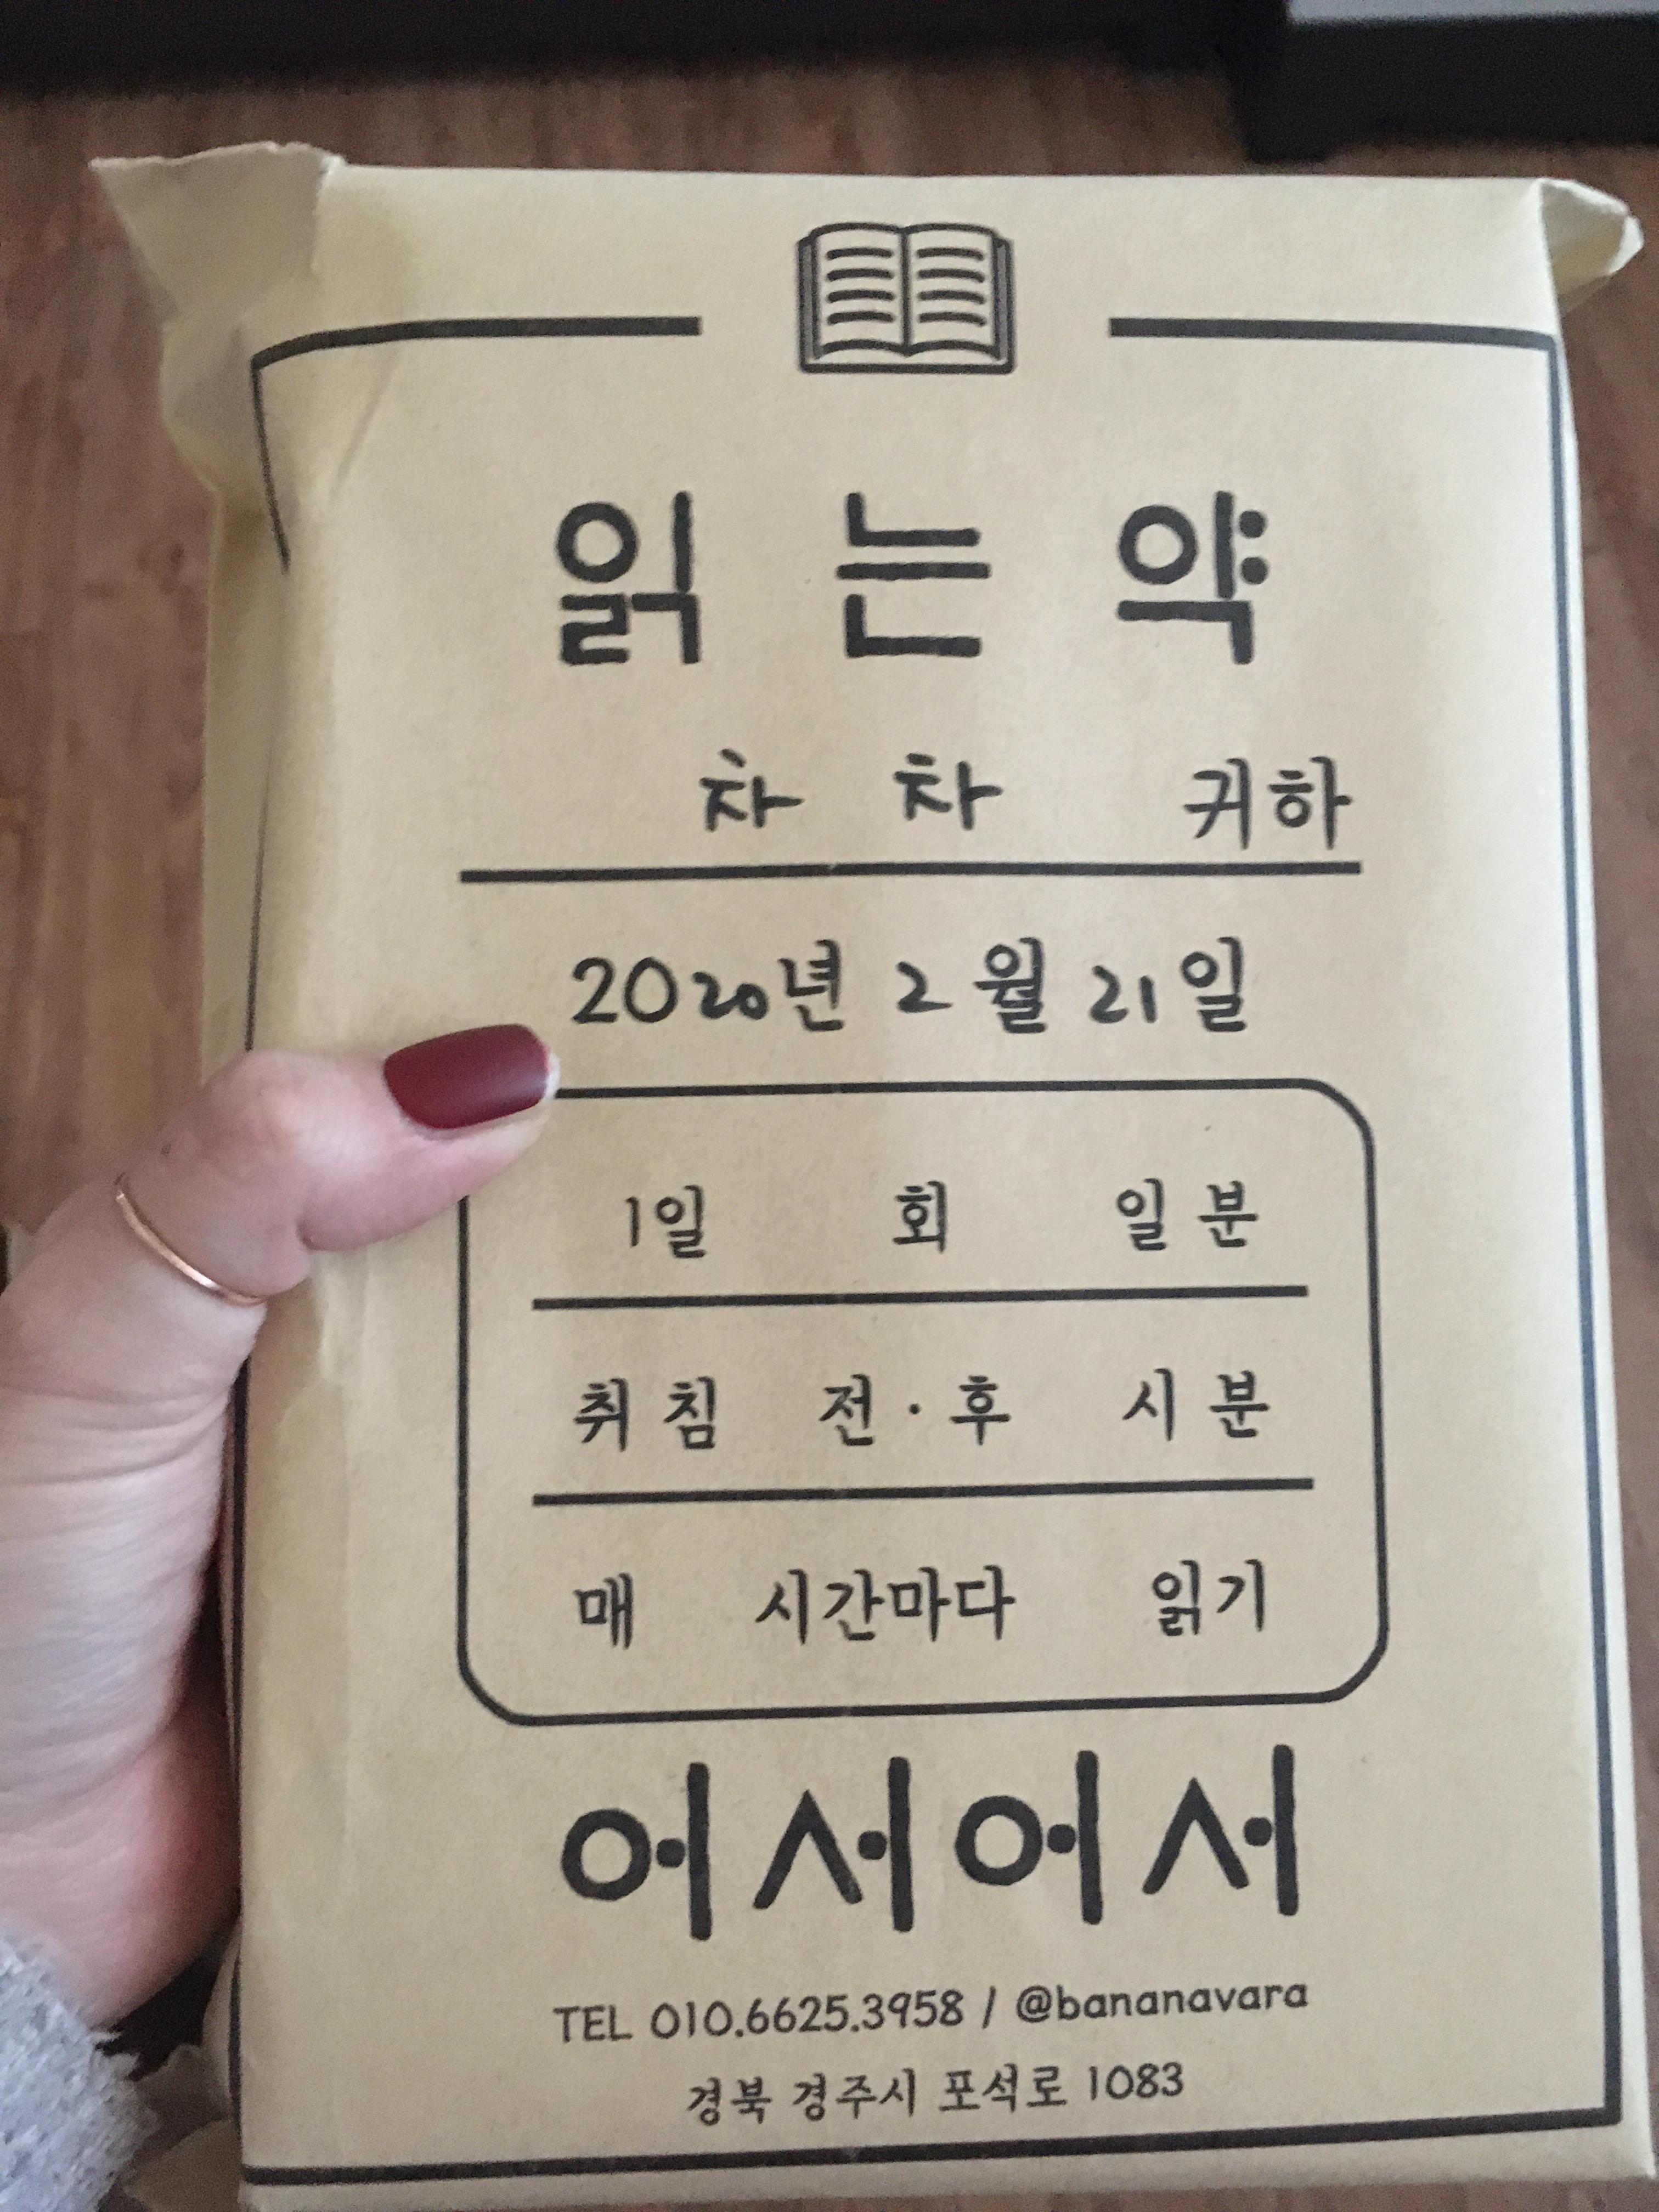 읽는약
차차 귀하
2020년 2월 21일
1일 회 일분
취침 전·후 시분
매 시간마다 읽기
어서어서
TEL 010.6625.3958 / @bananavara
경북 경주시 포석로 1083